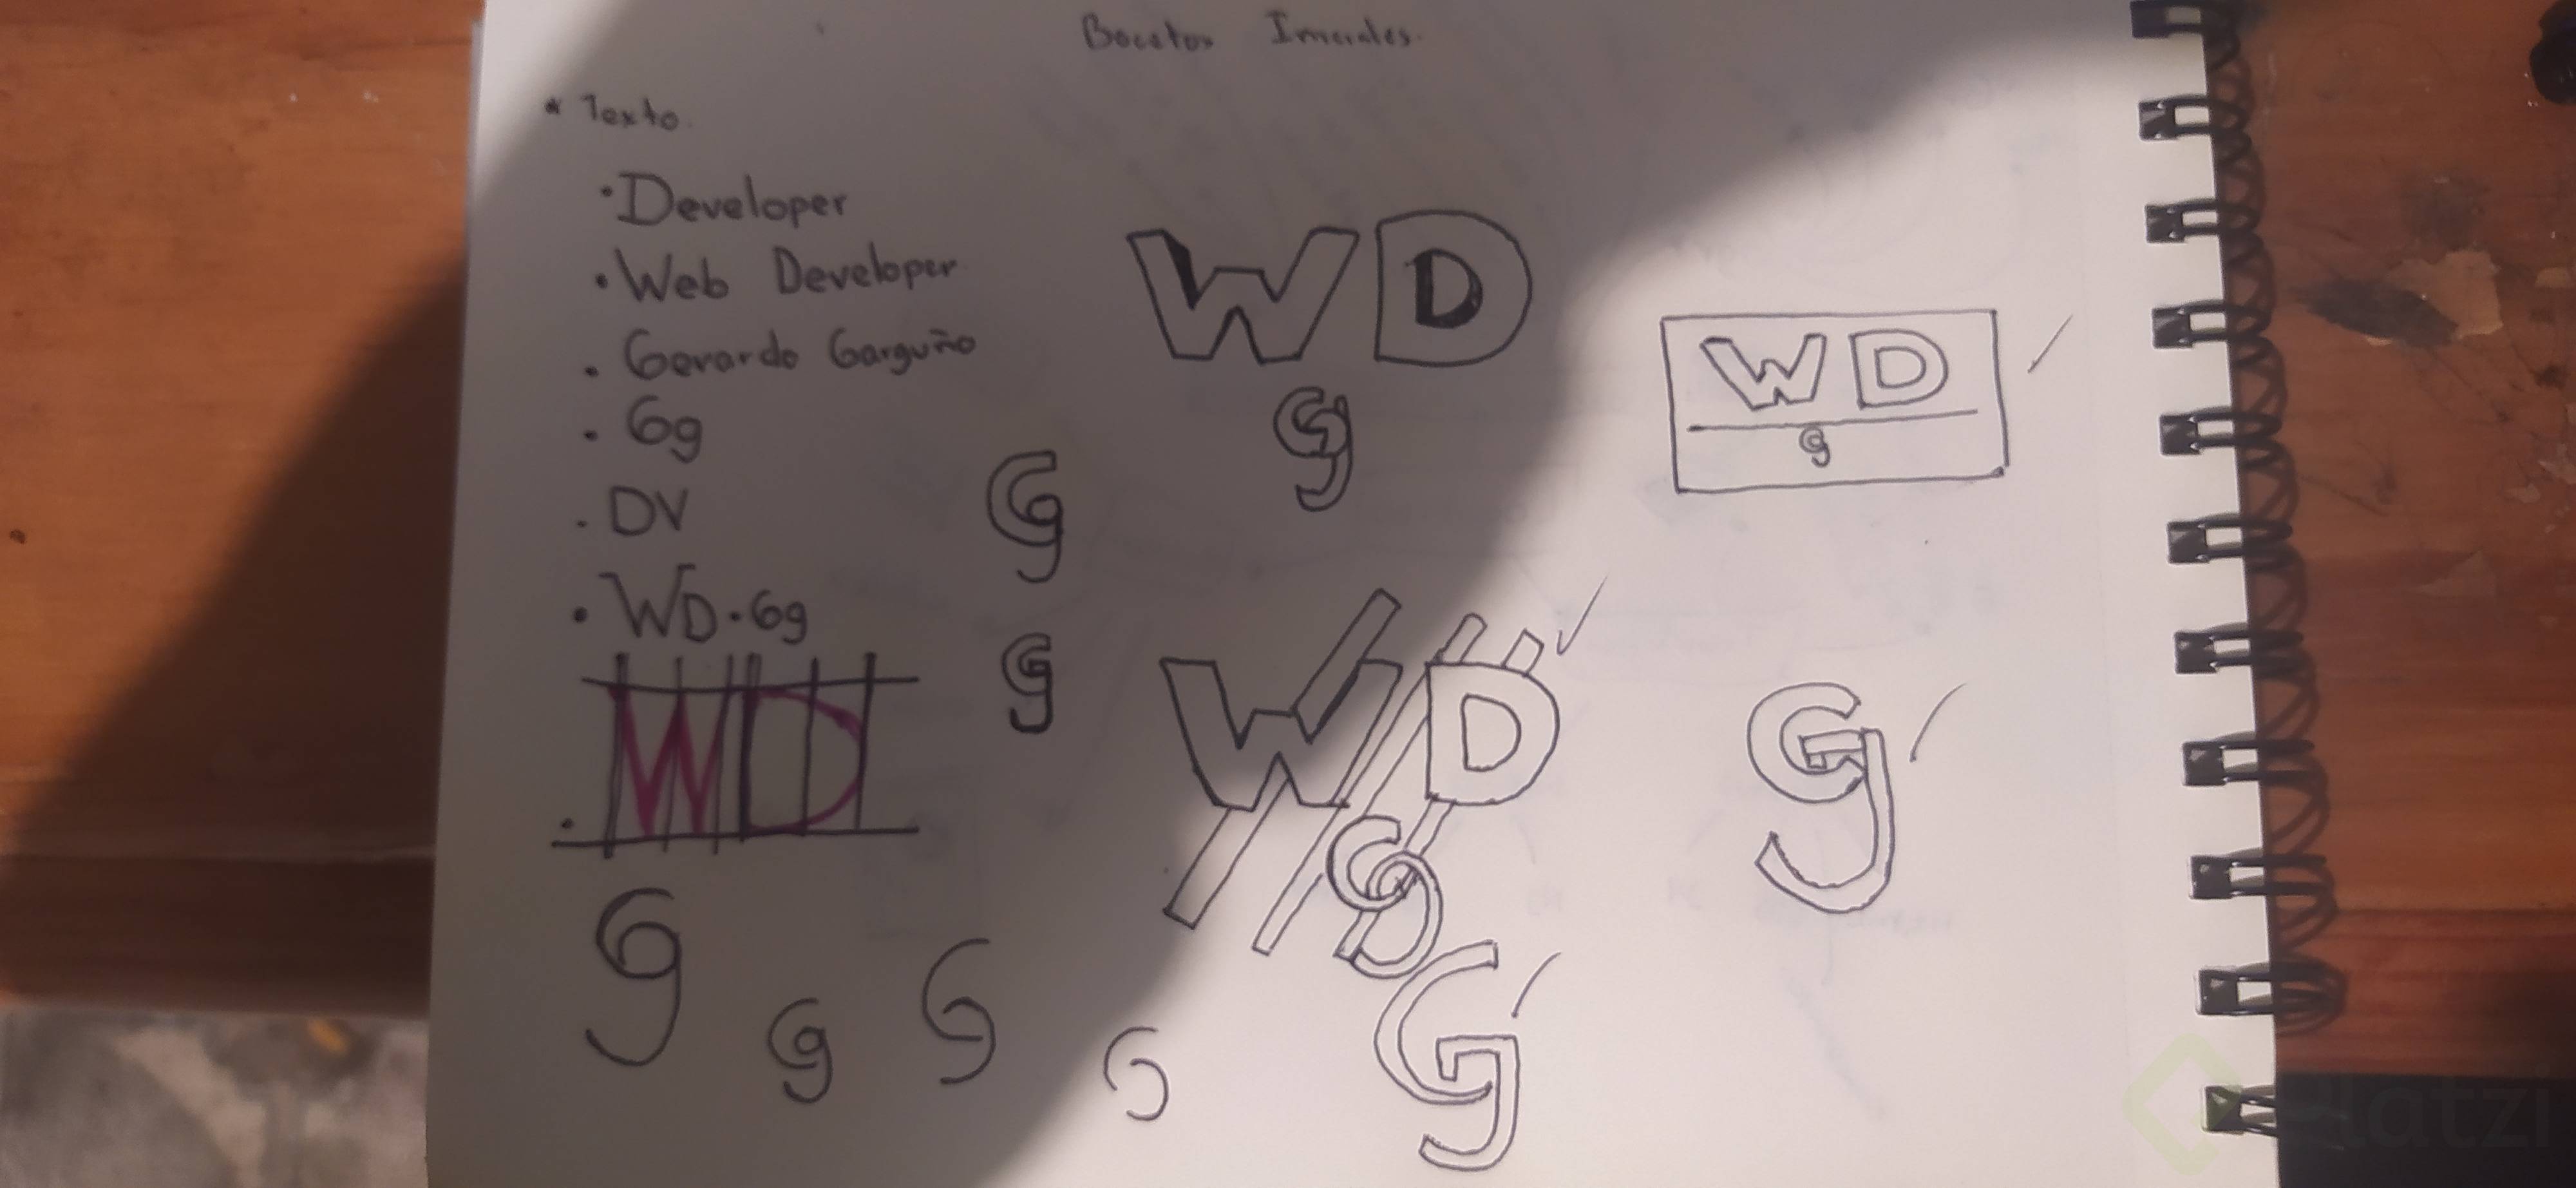 Bocetos Iniciales.
* Texto.
• Developer
• Web Developer
• Gerardo Garguño
• Gg
• DV
• WD•Gg
WD
g
WD
g
G
g
WD
WD
G
g
g
g
G
G
G
Platzi